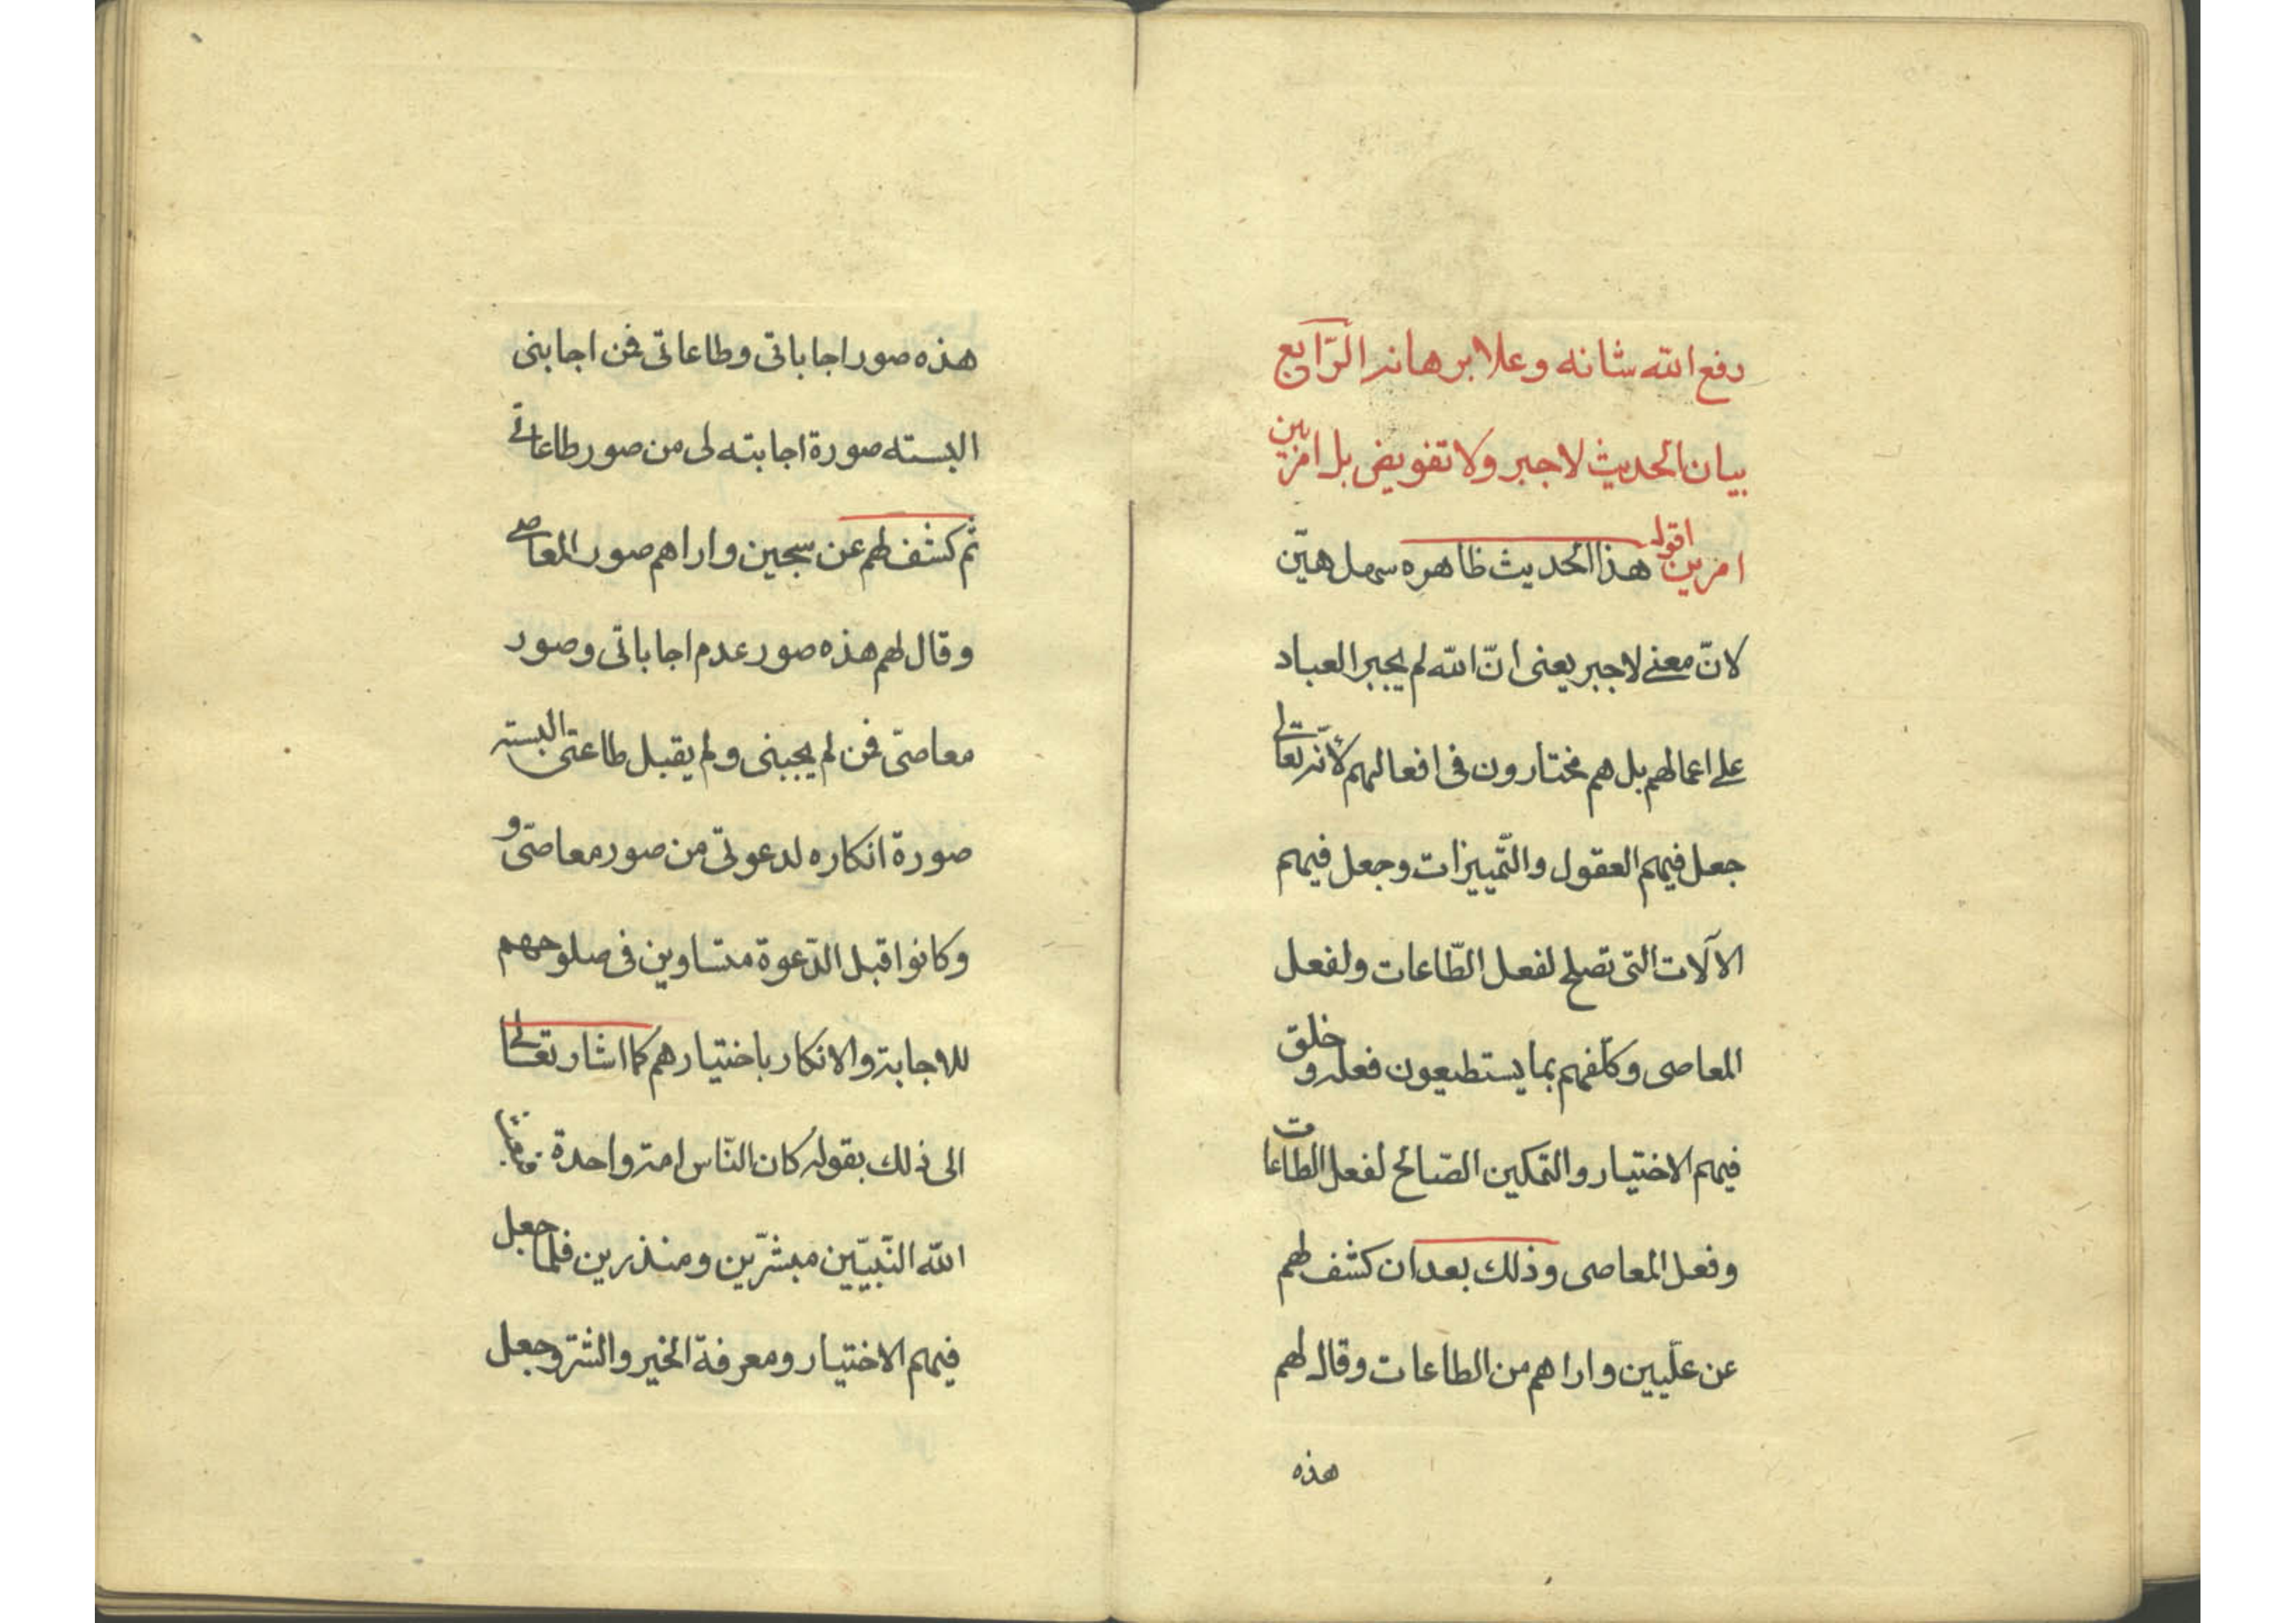 رفع الله شانه وعلا برهانه الرّابع
بيان الحديث لا جبر ولا تفويض بل امر بين
امرين اقول هذا الحديث ظاهره سهل هيّن
لانّ معنى لا جبر يعنى انّ الله لم يجبر العباد
على اعمالهم بل هم مختارون فى افعالهم لانّه تعالى
جعل فيهم العقول والتّمييزات وجعل فيهم
الآلات التى تصلح لفعل الطّاعات ولفعل
المعاصى وكلّفهم بما يستطيعون فعله وخلق
فيهم الاختيار والتمكين الصّالح لفعل الطاعات
وفعل المعاصى وذلك بعد ان كشف لهم
عن علّيين واراهم من الطاعات وقال لهم
هذه
هذه صور اجاباتى وطاعاتى فمن اجابنى
البسته صورة اجابته لى من صور طاعاتى
ثم كشف لهم عن سجين واراهم صور المعاصى
وقال لهم هذه صور عدم اجاباتى وصور
معاصىّ فمن لم يجبنى ولم يقبل طاعتى البسته
صورة انكاره لدعوتى من صور معاصىّ و
وكانوا قبل الدّعوة متساوين فى صلوحهم
للاجابة والانكار باختيارهم كما اشار تعالى
الى ذلك بقوله كان النّاس امة واحدة
الله النّبيّين مبشّرين ومنذرين فلما جعل
فيهم الاختيار ومعرفة الخير والشرّ وجعل